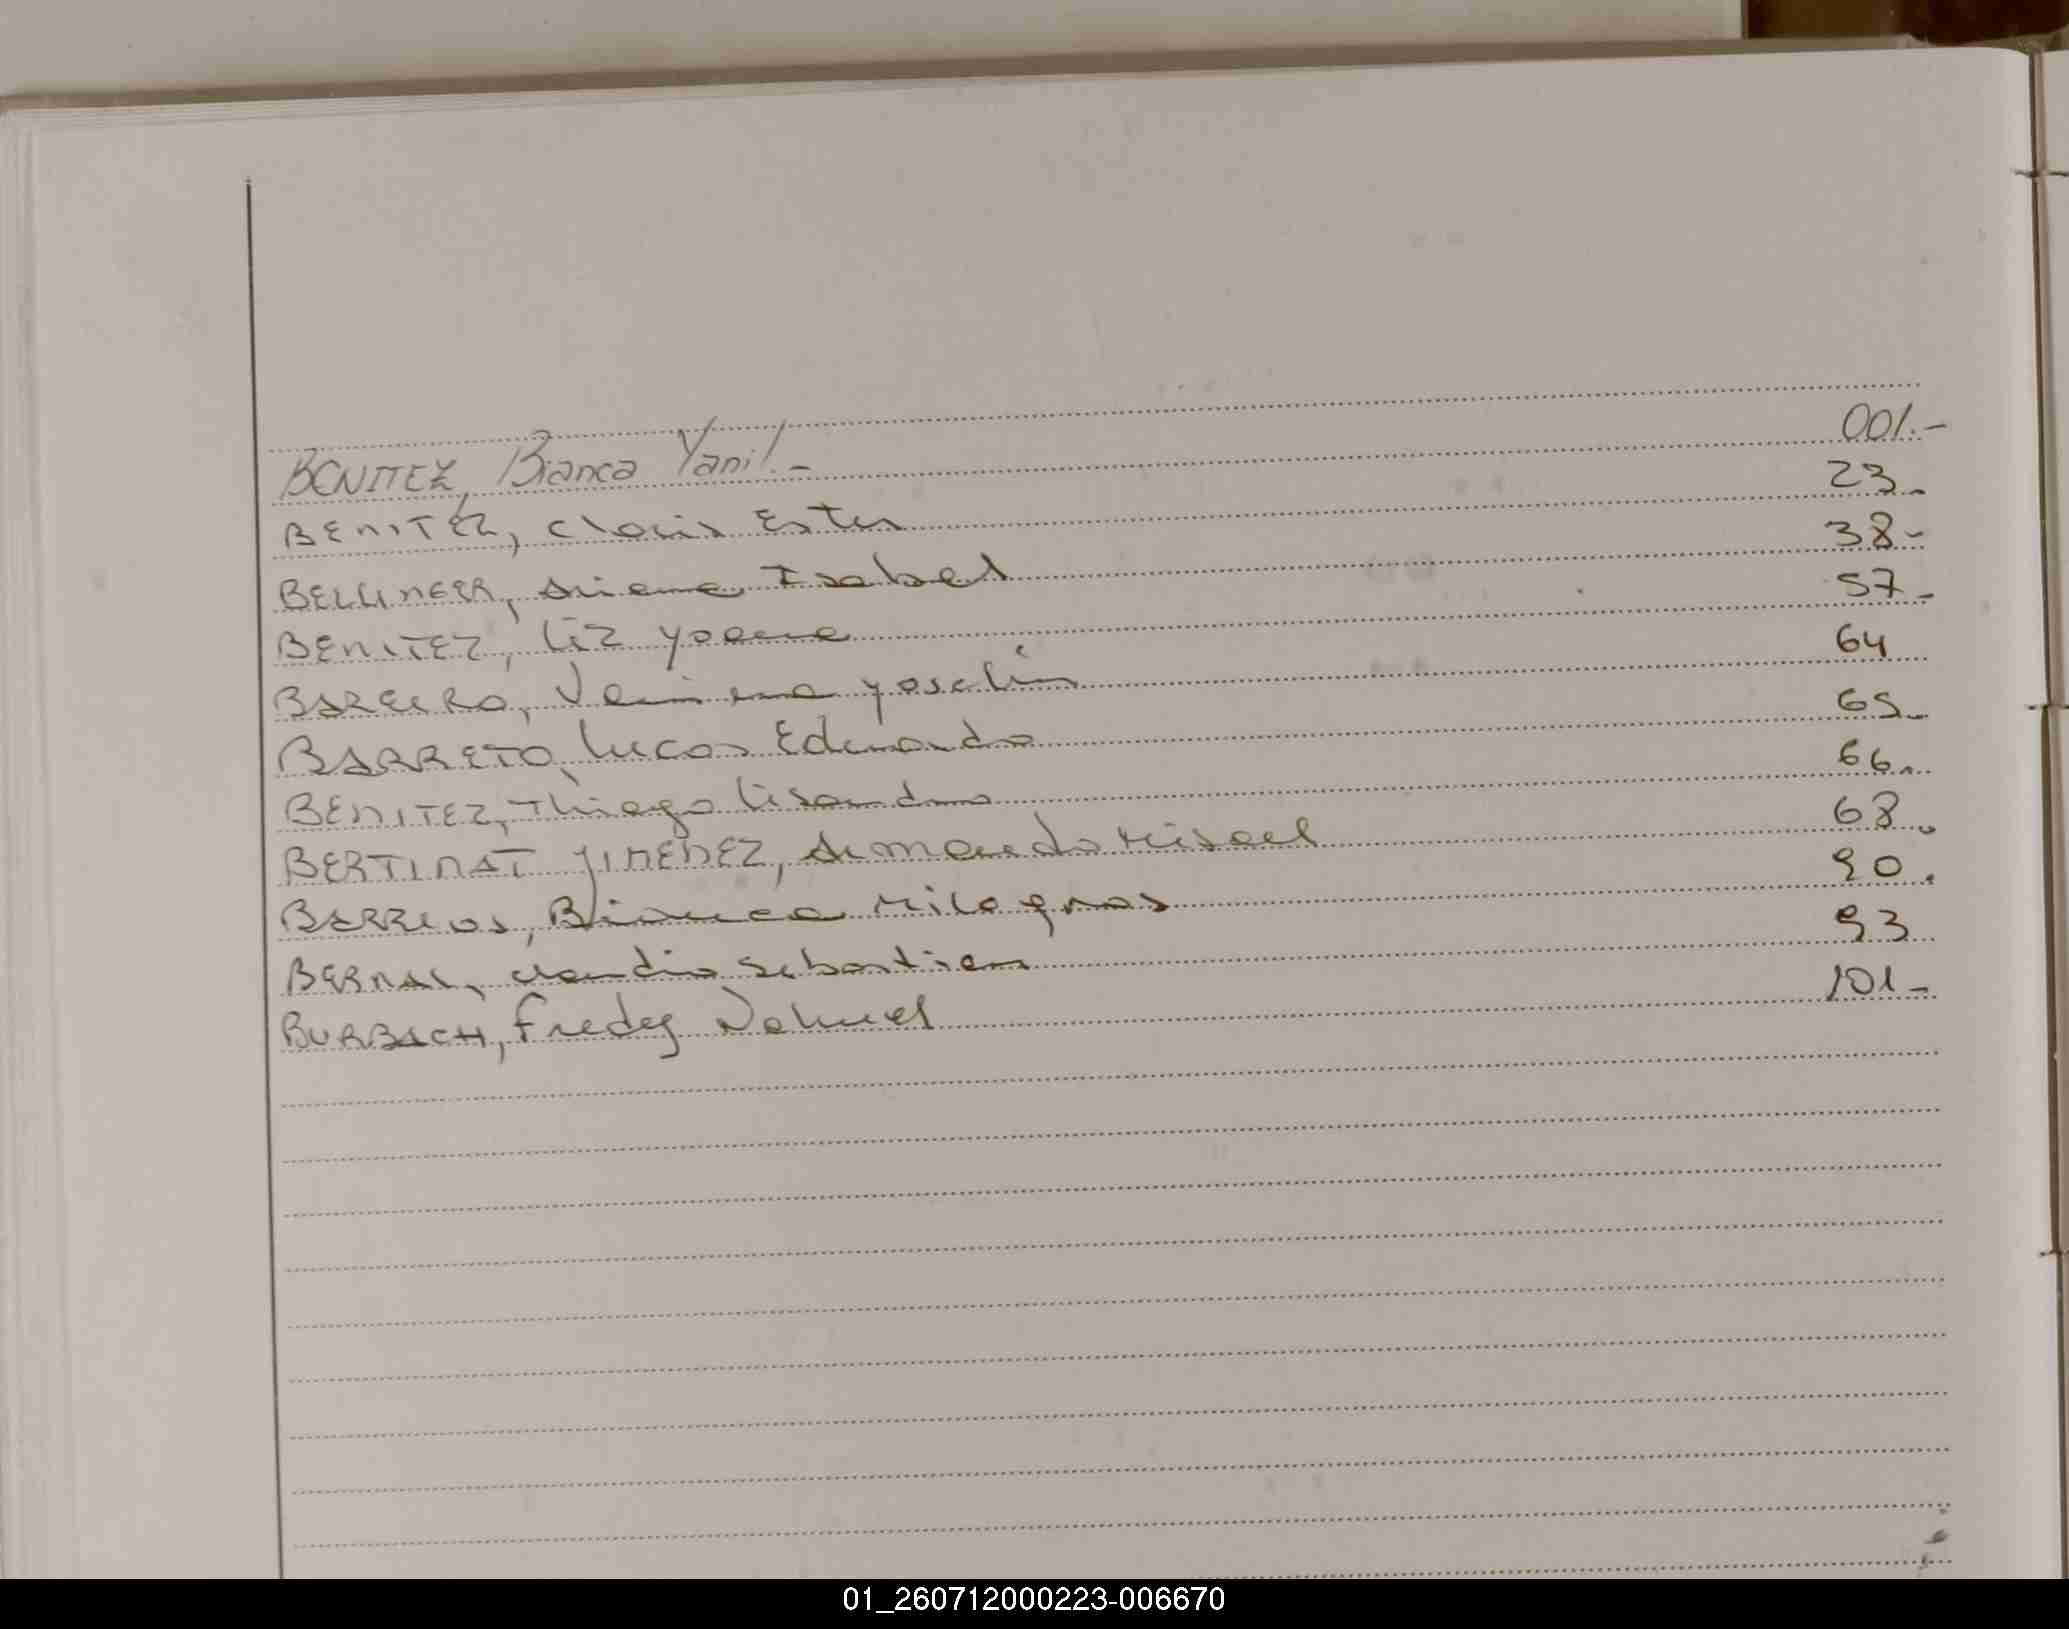 BENITEZ, Bianca Yanil.- 001.-
BENITEZ, Cloris Ester 23.-
BELLINGER, Ariana Isabel 38-
BENITEZ, Liz 57-
BAREIRO, yoselin 64
BARRETO, Lucas Eduardo 65.-
BENITEZ, Thiago Lisandro 66.-
BERTINAT JIMENEZ, Armando Misael 68.
BARRIOS, Bianca Milagros 90.
BERNAL, Claudio Sebastian 93
BURBACH, Fredy Nahuel 101-
01_260712000223-006670